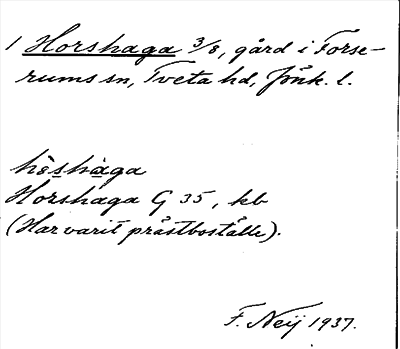 1 Horshaga 3/8, gård i Forse-
rums sn, Tveta hd, Jönk. l.
hòs̲hàga
Horshaga G 35, kb
(Har varit prästboställe).
F. Neij 1937.